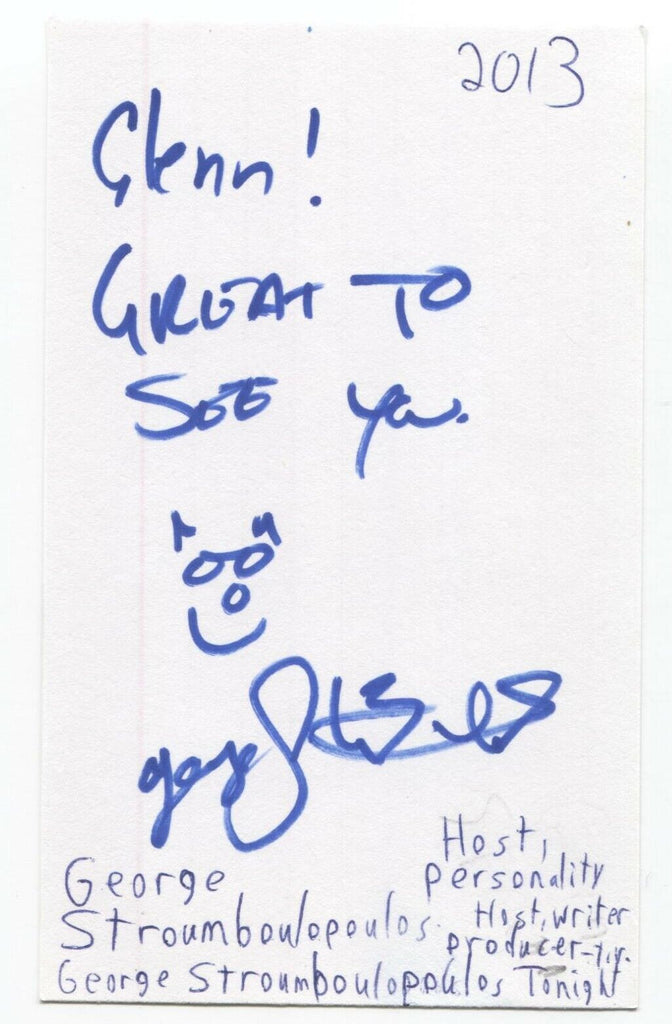 2013
Glenn!
GREAT TO
SEE Ya.
George
Stroumboulopoulos
Host,
personality
Host, writer
producer-T.V.
George Stroumboulopoulos Tonight